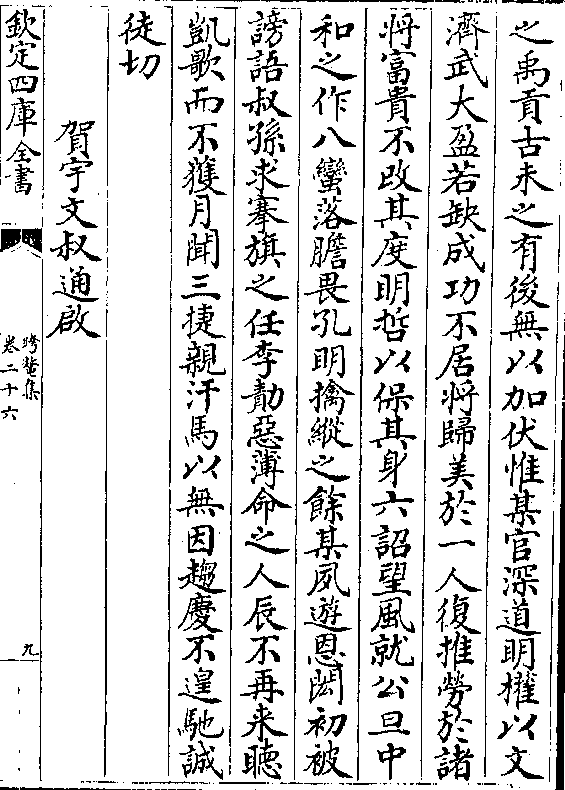 之禹貢古未之有後無以加伏惟某官深道明權以文
濟武大盈若缺成功不居將歸美於一人復推勞於諸
將富貴不改其度明哲以保其身六詔望風就公旦中
和之作八蠻落膽畏孔明擒縱之餘某夙遊恩閎初被
謗語叔孫求搴旗之任李勣惡薄命之人辰不再来聴
凱歌而不獲月聞三捷親汗馬以無因趨慶不遑馳誠
徒切
賀宇文叔通啟
欽定四庫全書
跨鼇集
卷二十六
九